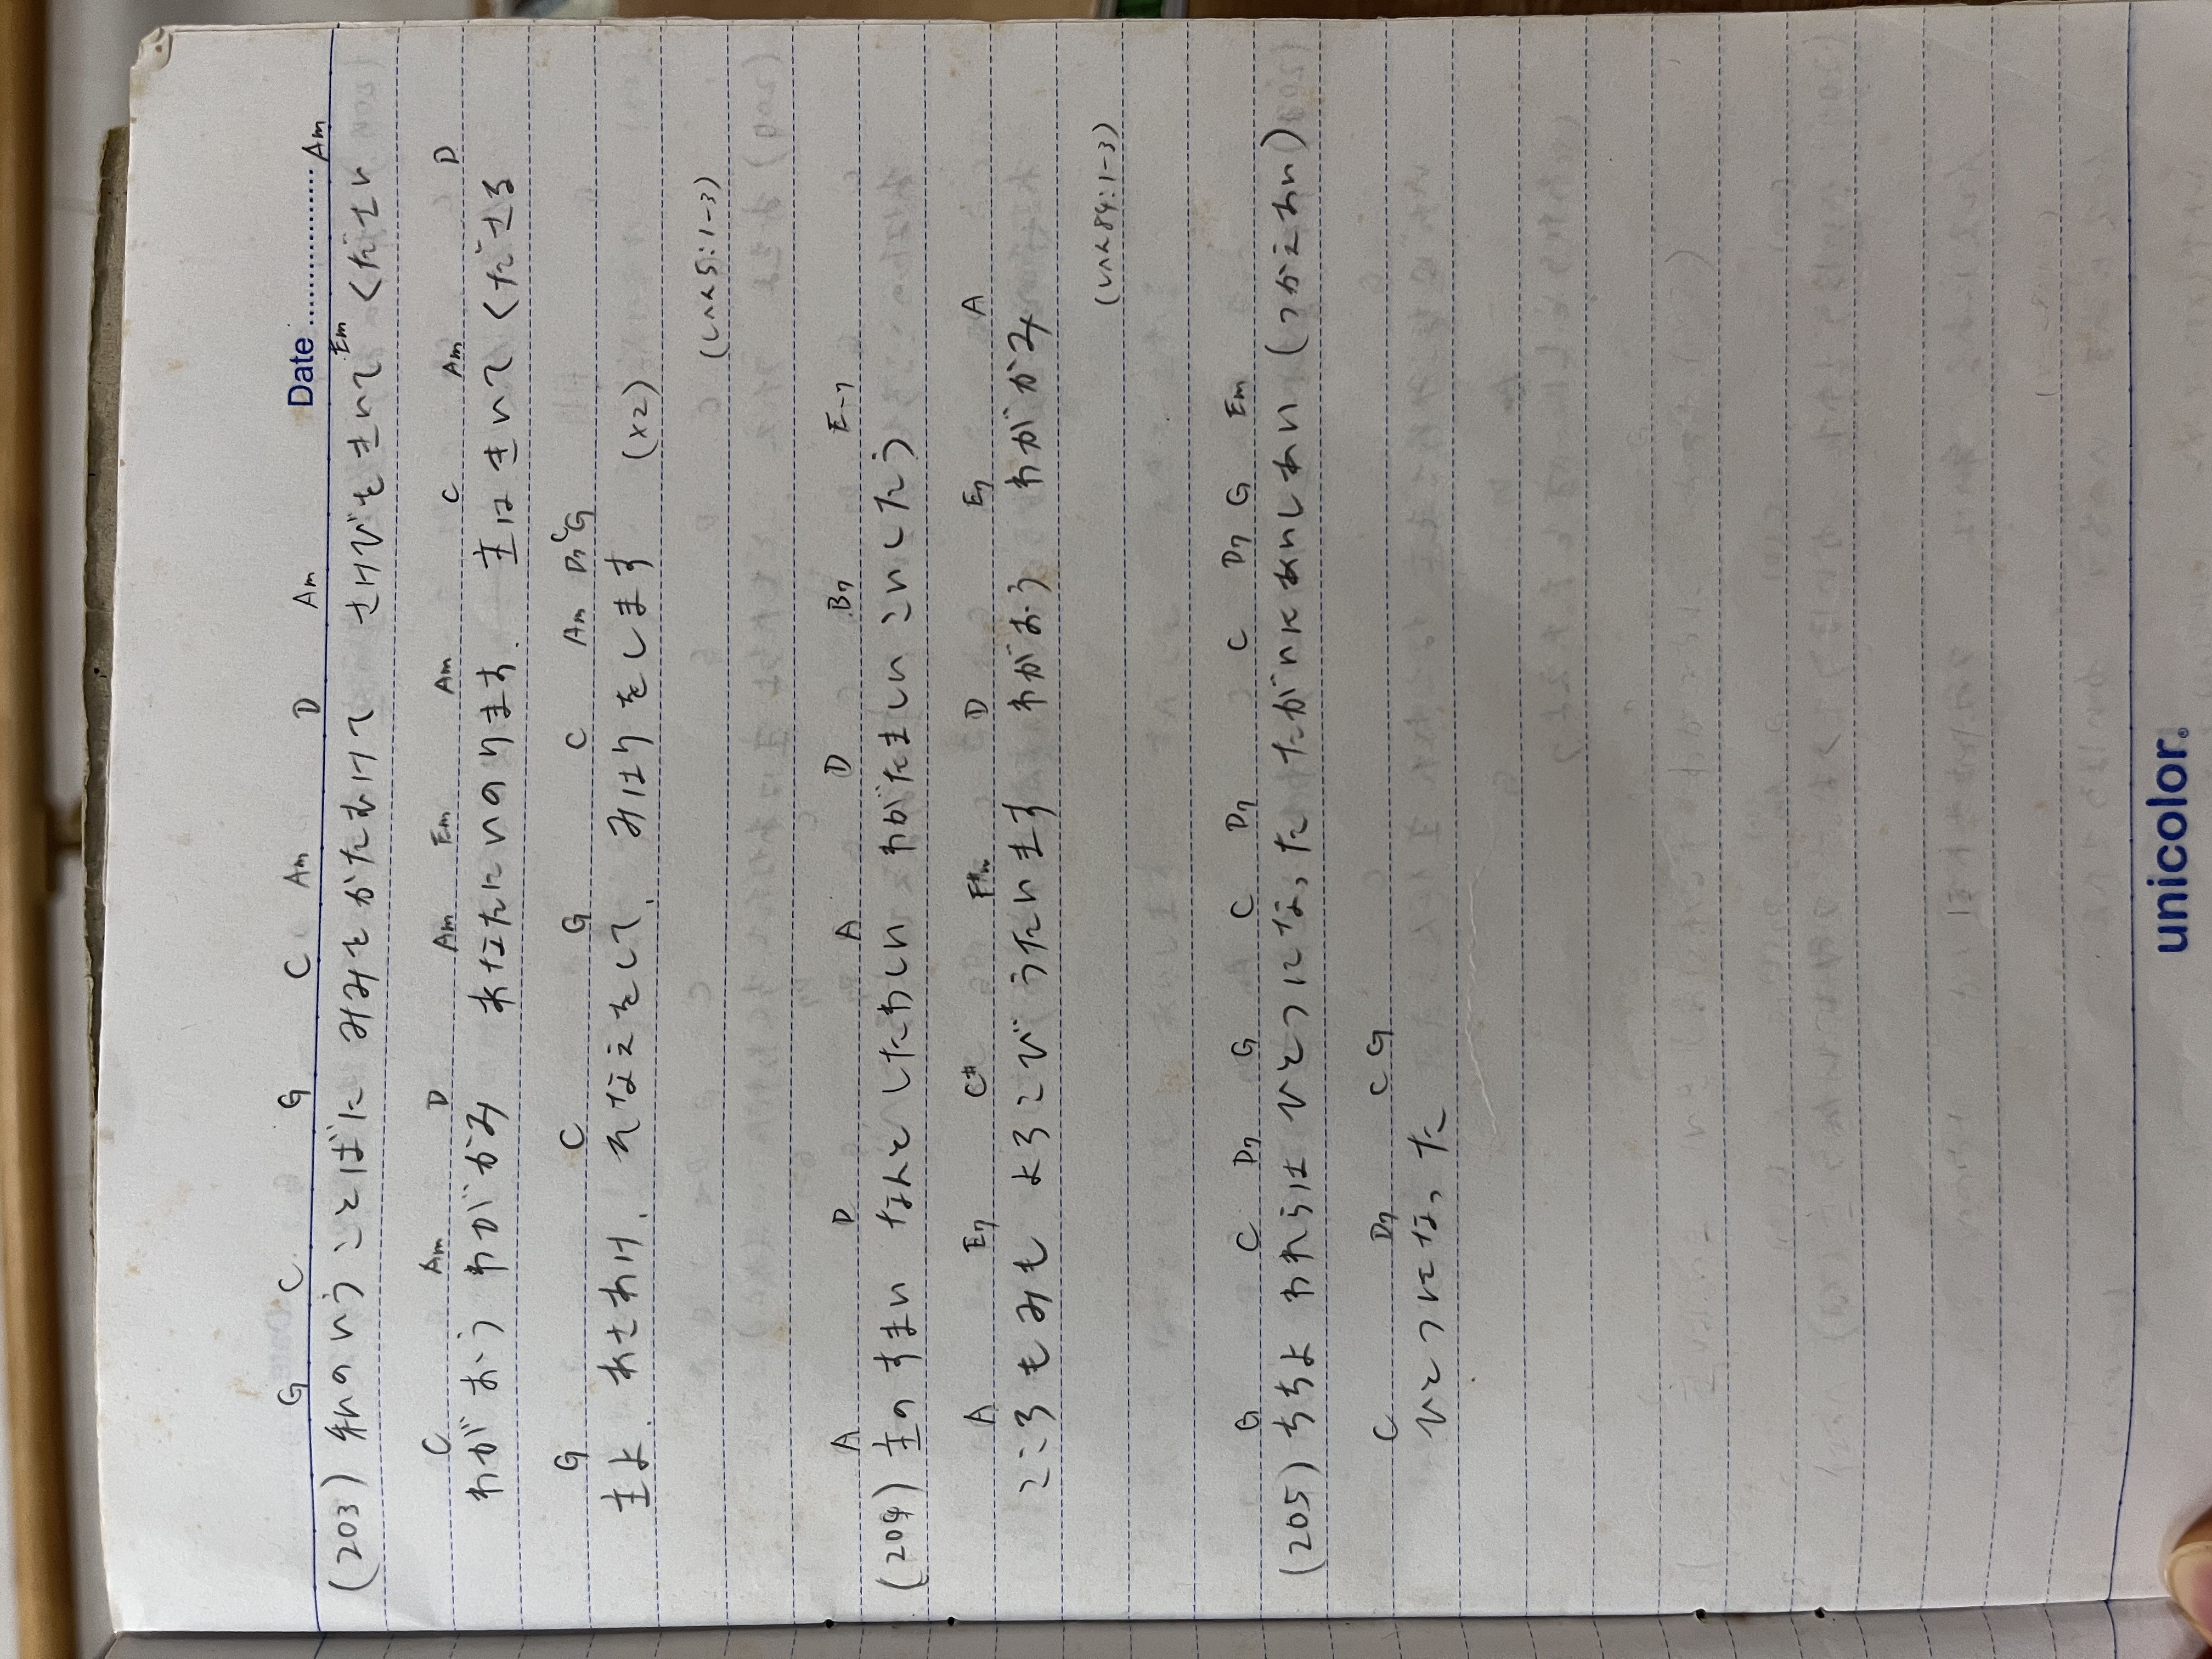 Date
G C G C Am D Am Em Am
(203) 私のいうことばに みみをかたむけて さけびをきいてください
C Am D Am Em Am C Am D
わがおう わがかみ あなたにいのります. 主はきいてくださる
G C G C Am D7 C G
主よ. あさわけ. そなえをして. みはりをします (x2)
(しへん5:1-3)
A D A D B7 E7
(204) 主のすまい なんとしたわしい わがたましい こいしたう
A E7 C# F#m D E7 A
こころもみも よろこびうたいます わがおう わがかみ
(しへん84:1-3)
G C D7 G C D7 C D7 G Em
(205) ちちよ われらは ひとつになった たがいにあいしあい (つかえあい)
C D7 C G
ひとつになった
unicolor.